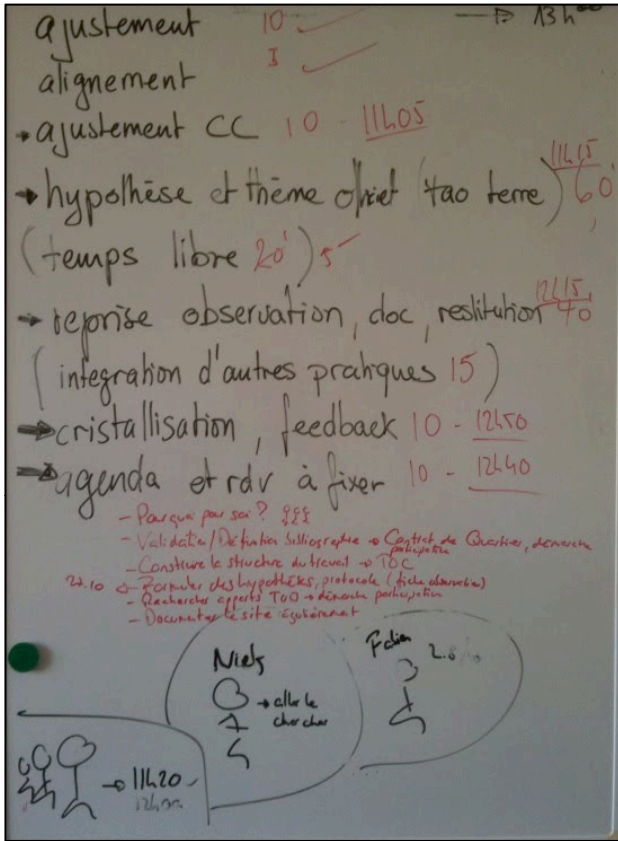 ajustement 10 → 13h00
alignement 5
→ ajustement CC 10 - 11h05
→ hypothèse et thème objet (tao terre) 11h15 60'
(temps libre 20') 5
→ reprise observation, doc, restitution 12h15 40
(integration d'autres pratiques 15)
→ cristallisation, feedback 10 - 12h50
→ agenda et rdv à fixer 10 - 12h40
- Pourquoi par soi ?
- Validation / Définition bibliographie → Contrat de Quartier, démarche participative
- Construire la structure du travail → TOC
22.10 - Formuler des hypothèses, protocole (fiche observation)
- Rechercher apports TAO → démarche participation
- Documenter le site régulièrement
Niels
→ aller le
chercher
Fabien
→ 11h20